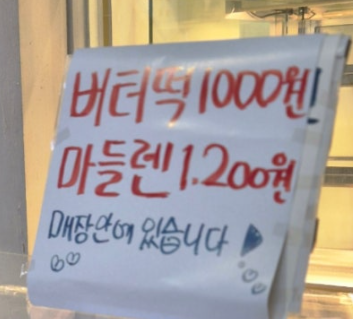 버터떡 1000원
마들렌 1.200원
매장안에 있습니다